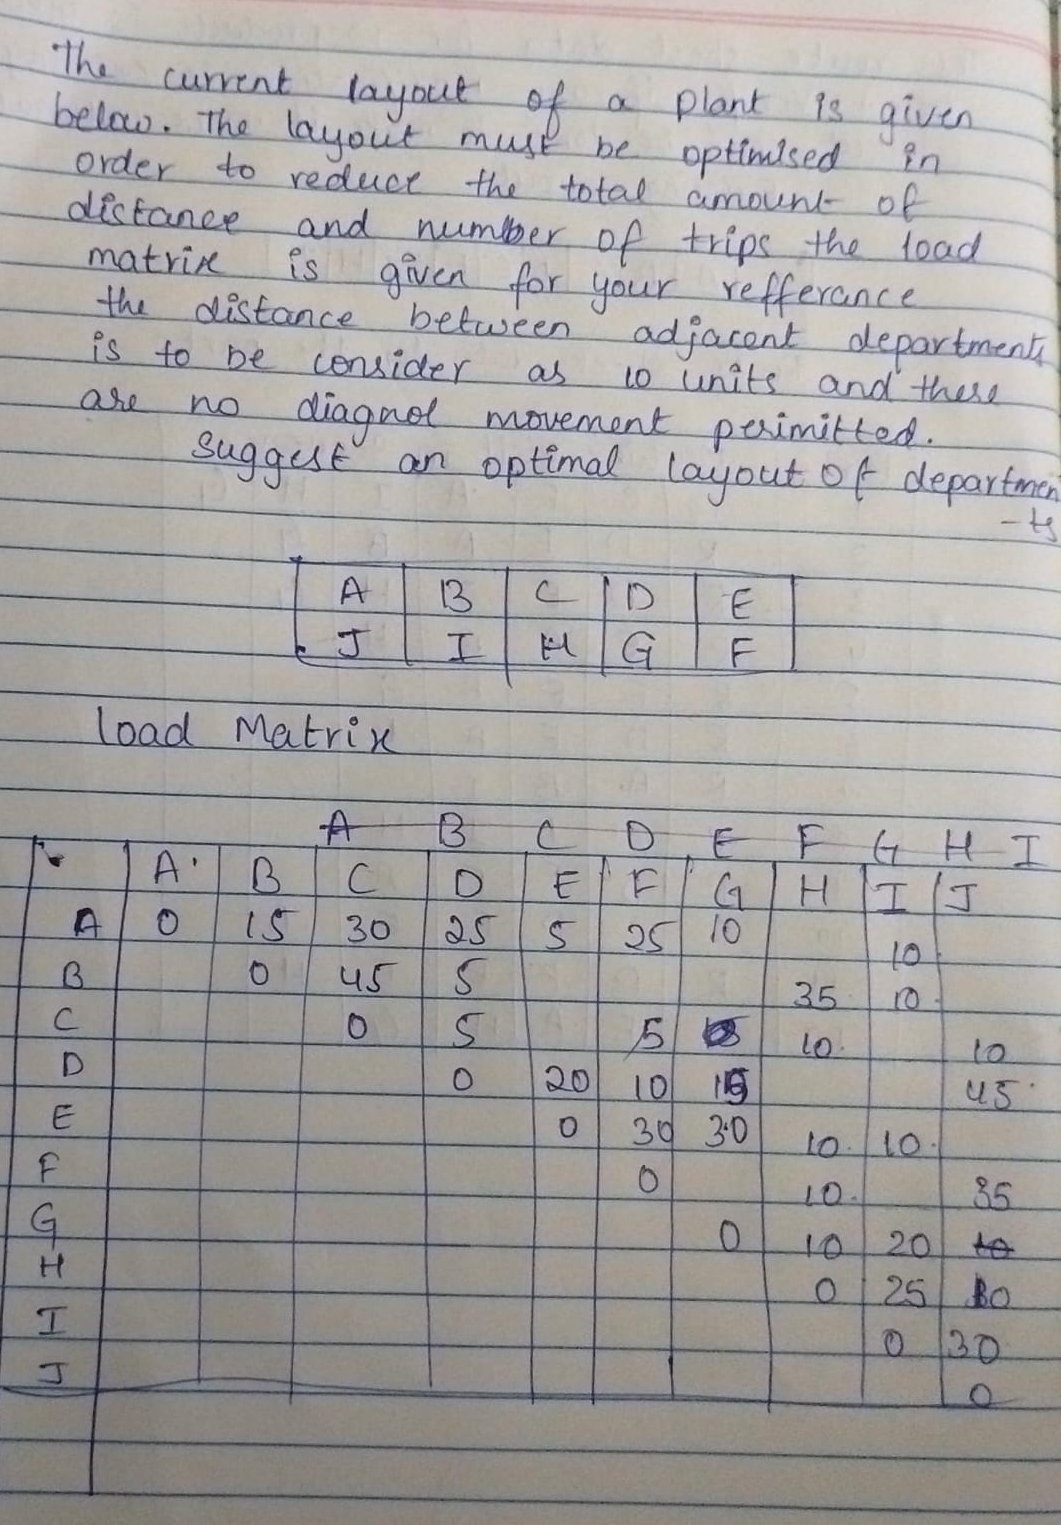 The current layout of a plant is given
below. The layout must be optimised in
order to reduce the total amount of
distance and number of trips the load
matrix is given for your refferance
the distance between adjacent departments
is to be consider as 10 units and there
are no diagnol movement perimitted.
suggest an optimal layout of departmen
-ts
A B C D E
J I H G F
Load Matrix
A B C D E F G H I
A B C D E F G H I J
A 0 15 30 25 5 25 10 10
B 0 45 5 35 10
C 0 5 5 10 10
D 0 20 10 45
E 0 30 30 10 10
F 0 10 35
G 0 10 20 10
H 0 25
I 0 30
J 0